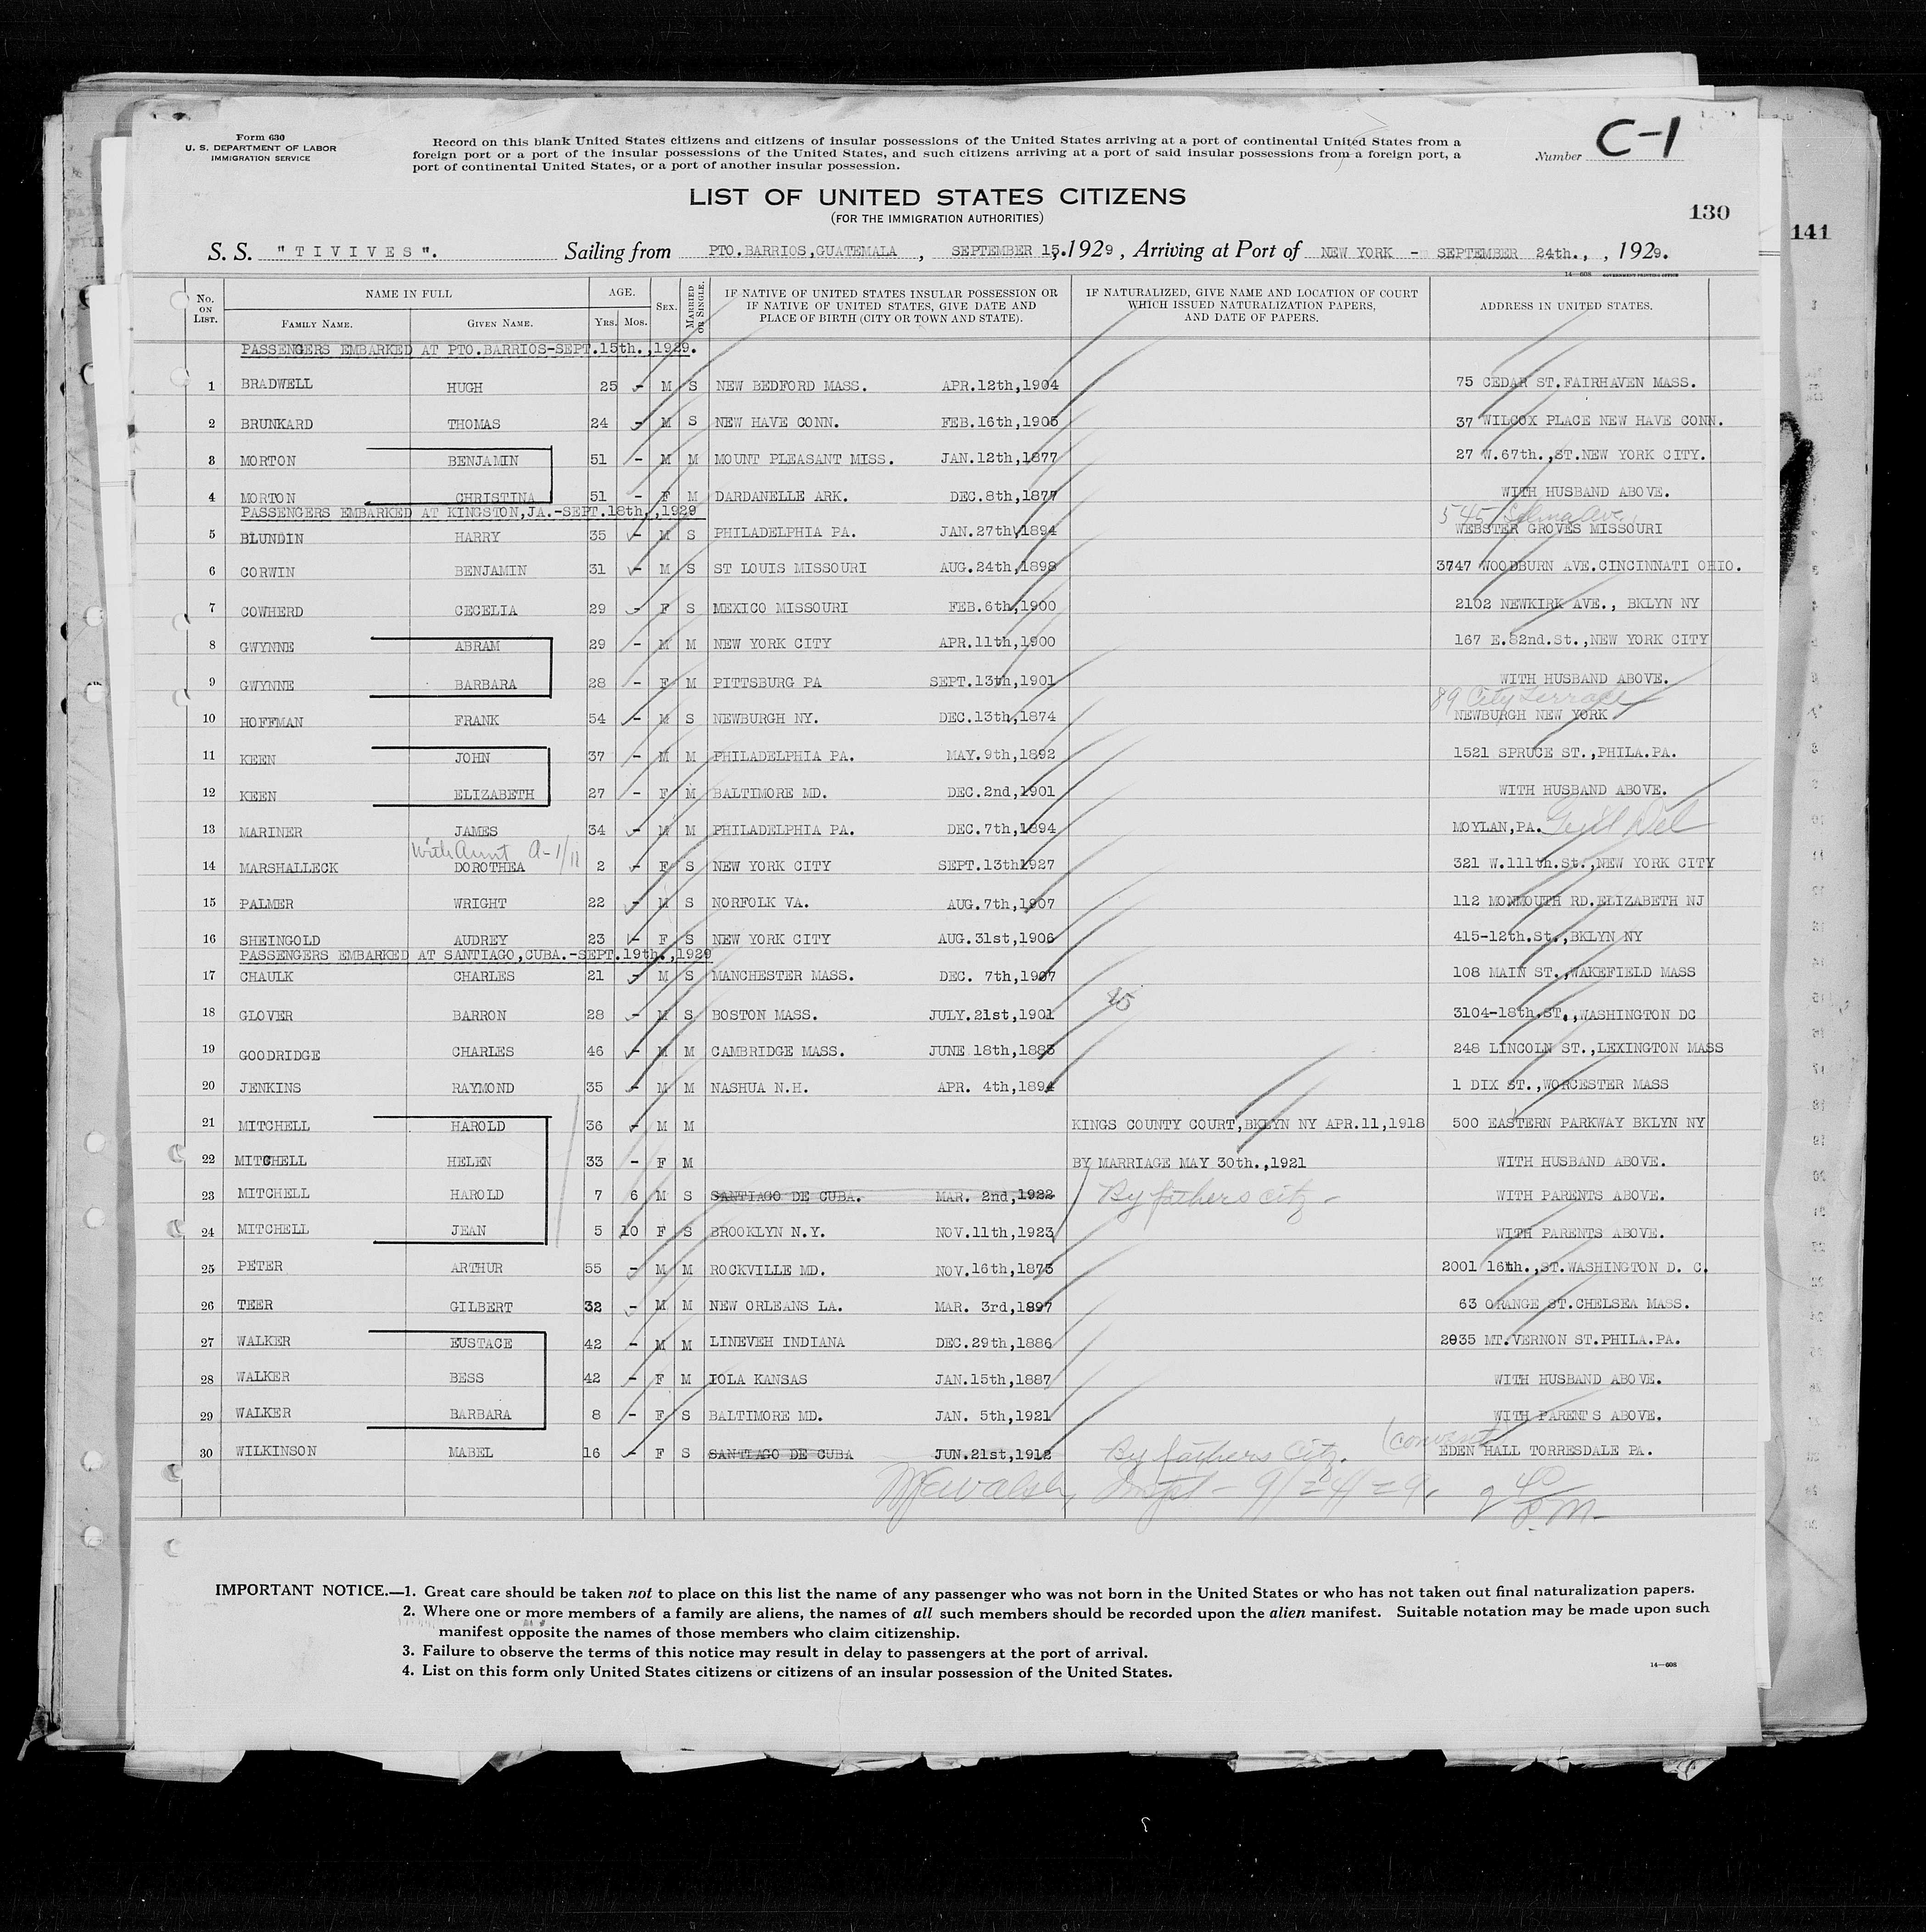 Form 630
U. S. DEPARTMENT OF LABOR
IMMIGRATION SERVICE
Record on this blank United States citizens and citizens of insular possessions of the United States arriving at a port of continental United States from a
foreign port or a port of the insular possessions of the United States, and such citizens arriving at a port of said insular possessions from a foreign port, a
port of continental United States, or a port of another insular possession.
Number C-1
LIST OF UNITED STATES CITIZENS
(FOR THE IMMIGRATION AUTHORITIES)
130
141
S. S. "TIVIVES". Sailing from PTO.BARRIOS,GUATEMALA , SEPTEMBER 15,.1929, Arriving at Port of NEW YORK - SEPTEMBER 24th., , 1929.
14—608 GOVERNMENT PRINTING OFFICE
No. ON LIST. NAME IN FULL FAMILY NAME. GIVEN NAME. AGE. Yrs. Mos. SEX. MARRIED OR SINGLE. IF NATIVE OF UNITED STATES INSULAR POSSESSION OR IF NATIVE OF UNITED STATES, GIVE DATE AND PLACE OF BIRTH (CITY OR TOWN AND STATE). IF NATURALIZED, GIVE NAME AND LOCATION OF COURT WHICH ISSUED NATURALIZATION PAPERS, AND DATE OF PAPERS. ADDRESS IN UNITED STATES.
PASSENGERS EMBARKED AT PTO.BARRIOS-SEPT.15th.,1929.
1 BRADWELL HUGH 25 - M S NEW BEDFORD MASS. APR.12th,1904 75 CEDAR ST.FAIRHAVEN MASS.
2 BRUNKARD THOMAS 24 - M S NEW HAVE CONN. FEB.16th,1905 37 WILCOX PLACE NEW HAVE CONN.
3 MORTON BENJAMIN 51 - M M MOUNT PLEASANT MISS. JAN.12th,1877 27 W.67th.,ST.NEW YORK CITY.
4 MORTON CHRISTINA 51 - F M DARDANELLE ARK. DEC.8th,1877 WITH HUSBAND ABOVE.
PASSENGERS EMBARKED AT KINGSTON,JA.-SEPT.18th.,1929
545 Selma Ave
5 BLUNDIN HARRY 35 - M S PHILADELPHIA PA. JAN.27th,1894 WEBSTER GROVES MISSOURI
6 CORWIN BENJAMIN 31 - M S ST LOUIS MISSOURI AUG.24th,1898 3747 WOODBURN AVE.CINCINNATI OHIO.
7 COWHERD CECELIA 29 - F S MEXICO MISSOURI FEB.6th,1900 2102 NEWKIRK AVE., BKLYN NY
8 GWYNNE ABRAM 29 - M M NEW YORK CITY APR.11th,1900 167 E.82nd.St.,NEW YORK CITY
9 GWYNNE BARBARA 28 - F M PITTSBURG PA SEPT.13th,1901 WITH HUSBAND ABOVE.
89 City Terrace
10 HOFFMAN FRANK 54 - M S NEWBURGH NY. DEC.13th,1874 NEWBURGH NEW YORK
11 KEEN JOHN 37 - M M PHILADELPHIA PA. MAY.9th,1892 1521 SPRUCE ST.,PHILA.PA.
12 KEEN ELIZABETH 27 - F M BALTIMORE MD. DEC.2nd,1901 WITH HUSBAND ABOVE.
13 MARINER JAMES 34 - M M PHILADELPHIA PA. DEC.7th,1894 MOYLAN,PA.
With Aunt A-1/11
14 MARSHALLECK DOROTHEA 2 - F S NEW YORK CITY SEPT.13th1927 321 W.111th.St.,NEW YORK CITY
15 PALMER WRIGHT 22 - M S NORFOLK VA. AUG.7th,1907 112 MONMOUTH RD.ELIZABETH NJ
16 SHEINGOLD AUDREY 23 - F S NEW YORK CITY AUG.31st,1906 415-12th.St.,BKLYN NY
PASSENGERS EMBARKED AT SANTIAGO,CUBA.-SEPT.19th.,1929
17 CHAULK CHARLES 21 - M S MANCHESTER MASS. DEC. 7th,1907 108 MAIN ST.,WAKEFIELD MASS
18 GLOVER BARRON 28 - M S BOSTON MASS. JULY.21st,1901 3104-18th.ST.,WASHINGTON DC
19 GOODRIDGE CHARLES 46 - M M CAMBRIDGE MASS. JUNE 18th,1883 248 LINCOLN ST.,LEXINGTON MASS
20 JENKINS RAYMOND 35 - M M NASHUA N.H. APR. 4th,1894 1 DIX ST.,WORCESTER MASS
21 MITCHELL HAROLD 36 - M M KINGS COUNTY COURT,BKLYN NY APR.11,1918 500 EASTERN PARKWAY BKLYN NY
22 MITCHELL HELEN 33 - F M BY MARRIAGE MAY 30th.,1921 WITH HUSBAND ABOVE.
23 MITCHELL HAROLD 7 6 M S SANTIAGO DE CUBA. MAR. 2nd,1922 By fathers citz - WITH PARENTS ABOVE.
24 MITCHELL JEAN 5 10 F S BROOKLYN N.Y. NOV.11th,1923 WITH PARENTS ABOVE.
25 PETER ARTHUR 55 - M M ROCKVILLE MD. NOV.16th,1873 2001 16th.,ST.WASHINGTON D. C.
26 TEER GILBERT 32 - M M NEW ORLEANS LA. MAR. 3rd,1897 63 ORANGE ST.CHELSEA MASS.
27 WALKER EUSTACE 42 - M M LINEVEH INDIANA DEC.29th,1886 2035 MT.VERNON ST.PHILA.PA.
28 WALKER BESS 42 - F M IOLA KANSAS JAN.15th,1887 WITH HUSBAND ABOVE.
29 WALKER BARBARA 8 - F S BALTIMORE MD. JAN. 5th,1921 WITH PARENTS ABOVE.
(convent)
30 WILKINSON MABEL 16 - F S SANTIAGO DE CUBA JUN.21st,1912 By fathers citz. EDEN HALL TORRESDALE PA.
IMPORTANT NOTICE.—1. Great care should be taken not to place on this list the name of any passenger who was not born in the United States or who has not taken out final naturalization papers.
2. Where one or more members of a family are aliens, the names of all such members should be recorded upon the alien manifest. Suitable notation may be made upon such
manifest opposite the names of those members who claim citizenship.
3. Failure to observe the terms of this notice may result in delay to passengers at the port of arrival.
4. List on this form only United States citizens or citizens of an insular possession of the United States.
14—608